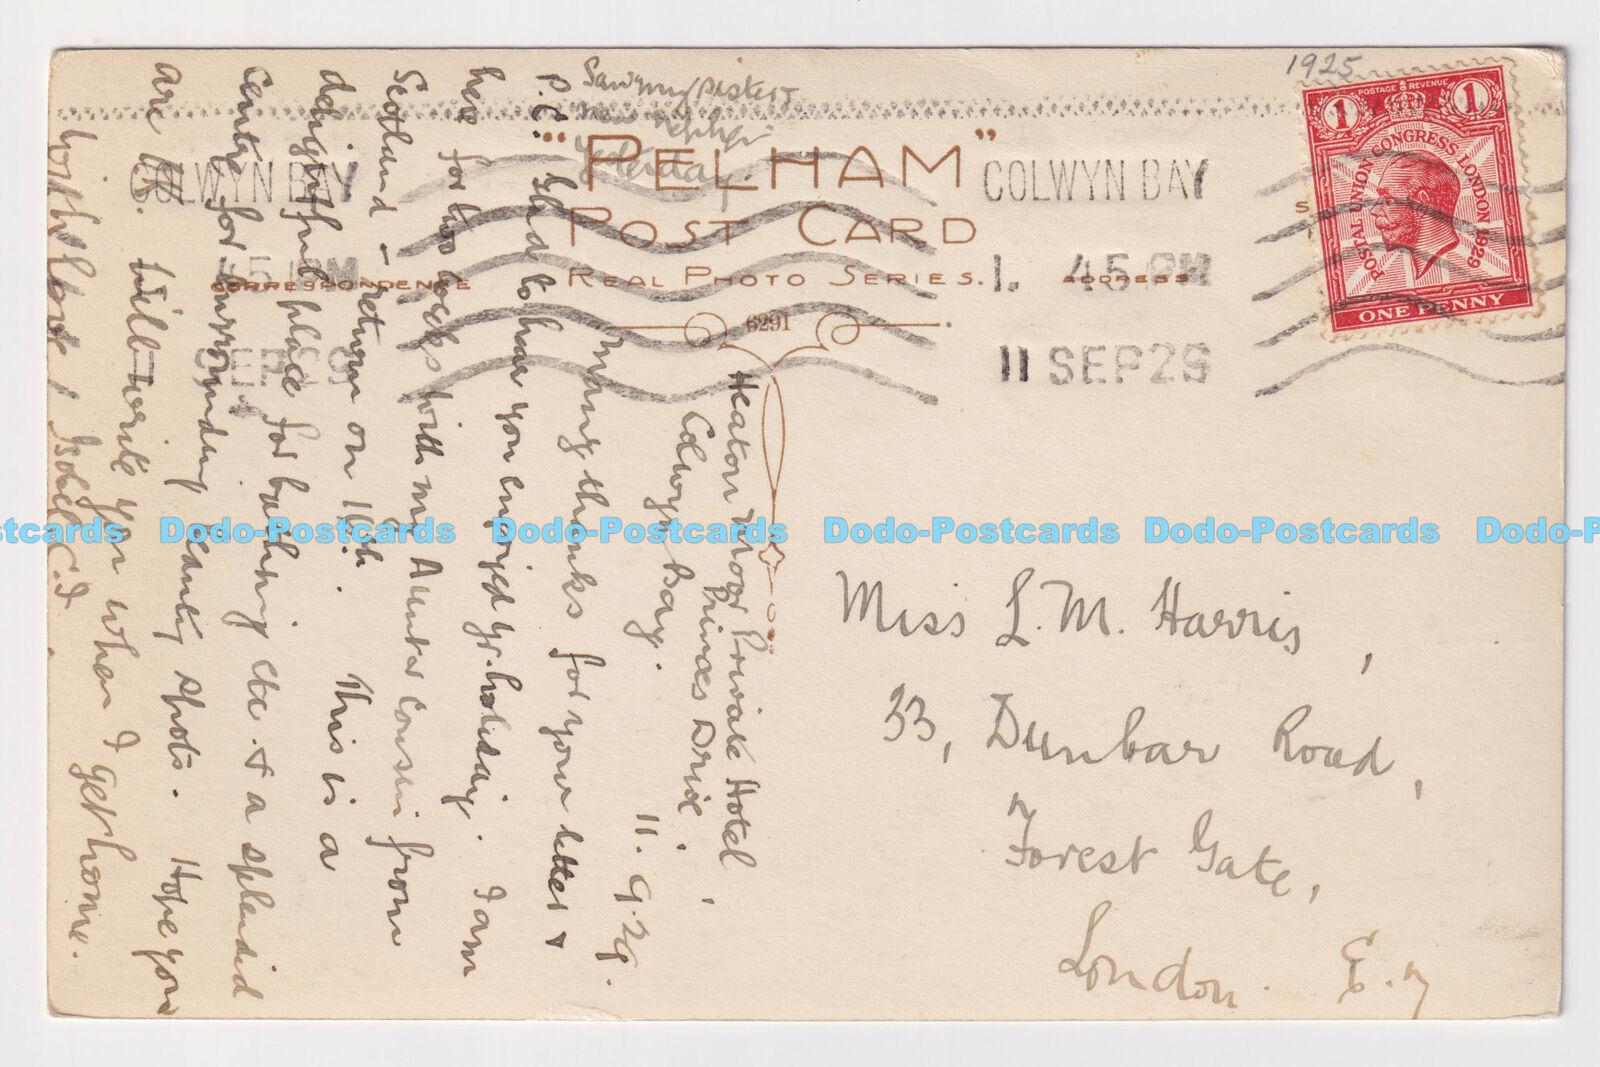 1925
1 POSTAGE & REVENUE 1
POSTAL UNION CONGRESS LONDON 1929
ONE PENNY
"PELHAM"
POST CARD
REAL PHOTO SERIES.
CORRESPONDENCE
ADDRESS
6291
COLWYN BAY
COLWYN BAY
1. 45 PM
11 SEP 29
Heaton Private Hotel,
Princes Drive.
Colwyn Bay.
11.9.29.
Many thanks for your letter &
P.C. Glad to hear you enjoyed yr. holiday. I am
here for two weeks with my Aunt & Cousin from
Scotland – return on 16th. This is a
delightful place for bathing etc. & a splendid
centre for surrounding beauty spots. Hope you
are fit. Will write you when I get home.
With love, Isobel C.
Saw my sister &
new nephew
yesterday.
Miss L. M. Harris,
33, Dunbar Road,
Forest Gate,
London. E.7
Dodo-Postcards Dodo-Postcards Dodo-Postcards Dodo-Postcards Dodo-Postcards